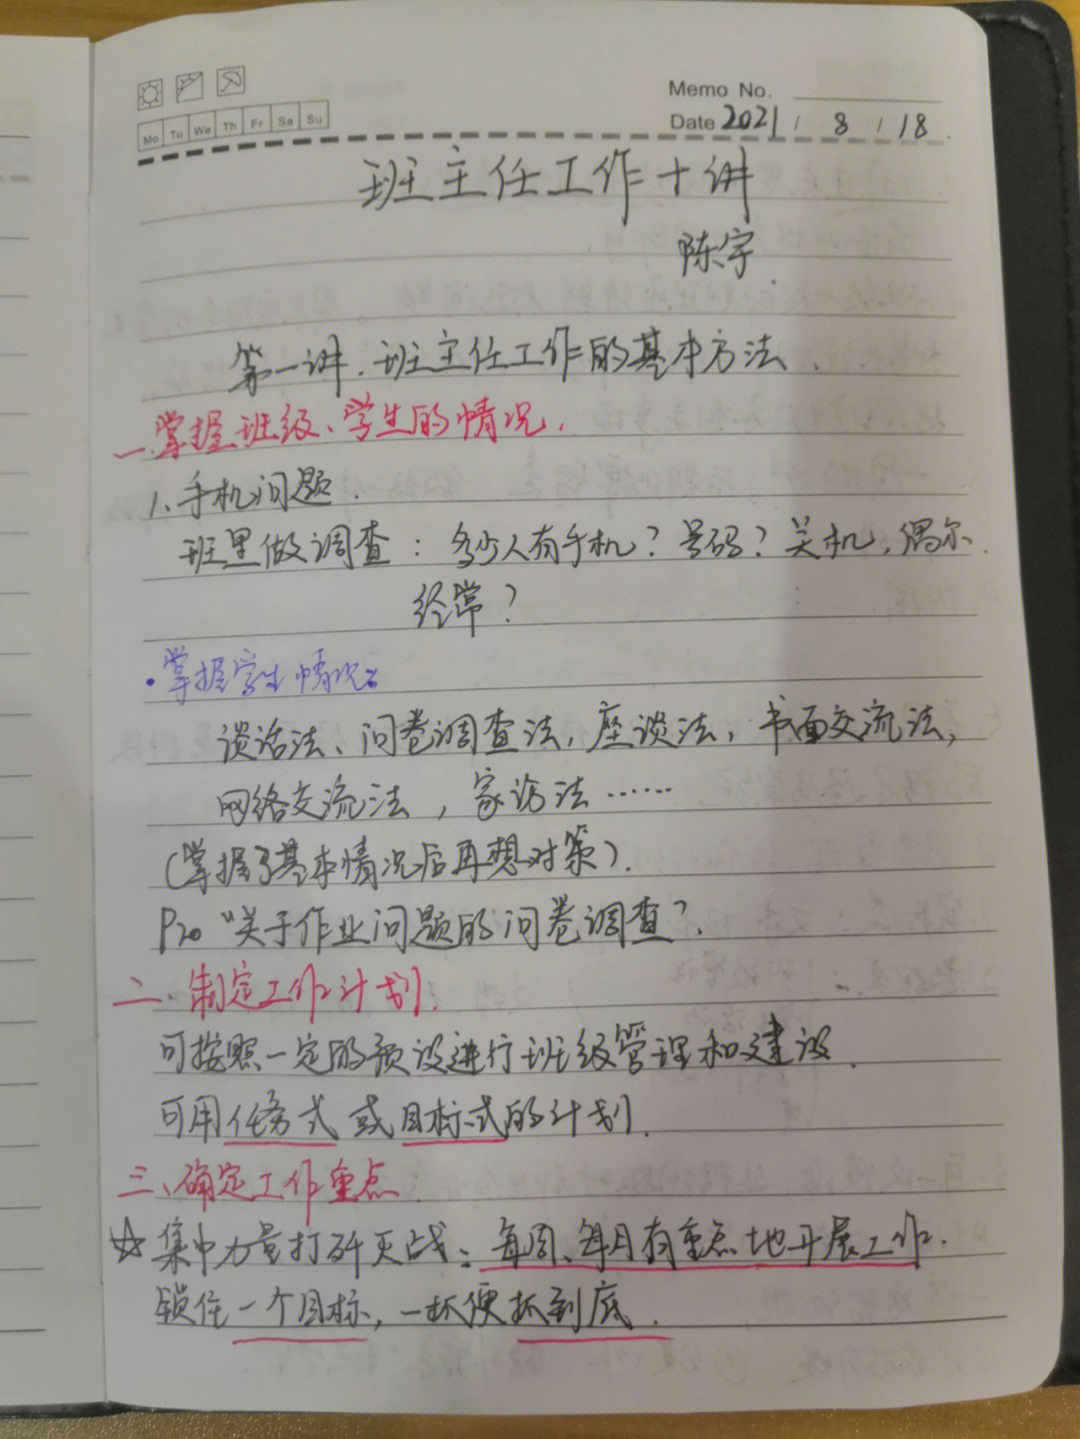 Memo No.
Mo Tu We Th Fr Sa Su
Date 2021 / 8 / 18
班主任工作十讲
陈宇
第一讲.班主任工作的基本方法.
一.掌握班级、学生的情况.
1.手机问题.
班里做调查:多少人有手机?号码?关机,偶尔.
经常?
·掌握学生情况:
谈话法、问卷调查法,座谈法,书面交流法,
网络交流法,家访法……
(掌握了基本情况后再想对策).
P20 "关于作业问题的问卷调查?
二.制定工作计划.
可按照一定的预设进行班级管理和建设.
可用任务式或目标式的计划.
三、确定工作重点.
☆集中力量打歼灭战:每周、每月有重点地开展工作.
锁住一个目标,一抓便抓到底.